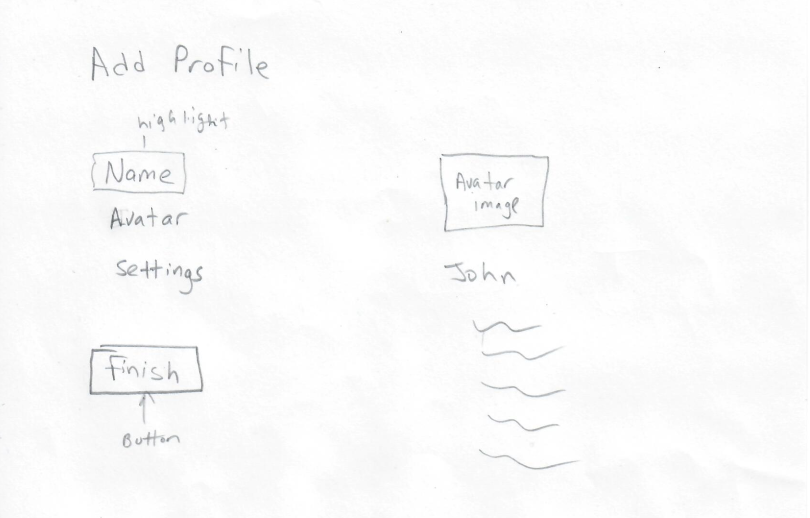 Add Profile
highlight
Name
Avatar
Settings
Finish
Button
Avatar
image
John